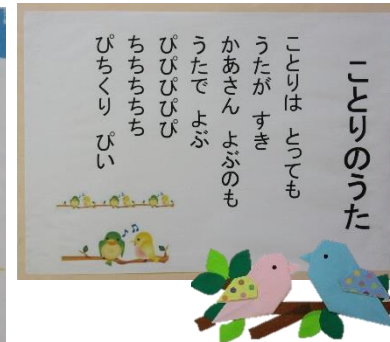 ことりのうた
ことりは とっても
うたが すき
かあさん よぶのも
うたで よぶ
ぴぴぴぴぴ
ちちちちち
ぴちくり ぴい